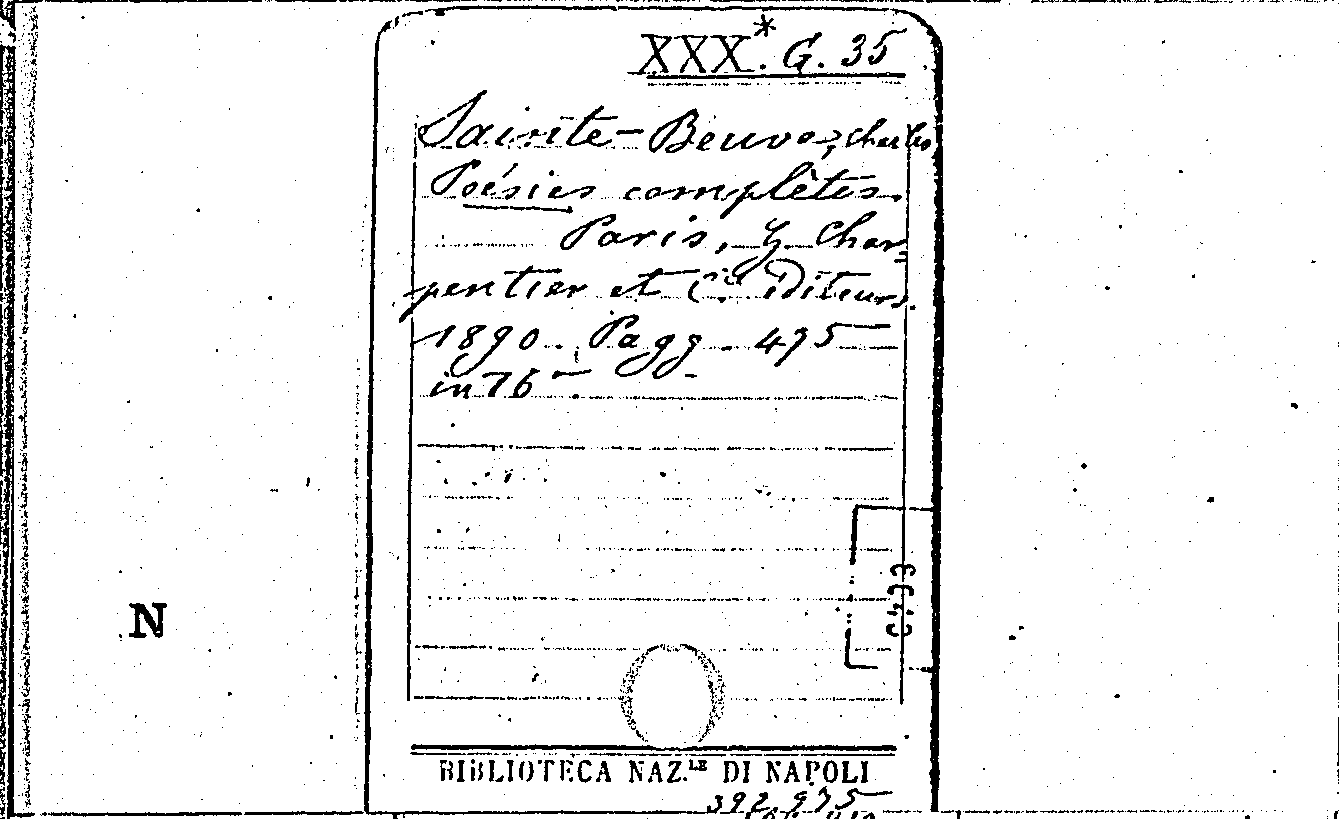 XXX*. G. 35
Sainte-Beuve, Charles
Poésies complètes.
Paris, G. Char=
pentier et C.ie Éditeurs.
1890. Pagg. 475
in 16°.
N
BIBLIOTECA NAZ.LE DI NAPOLI
392,975